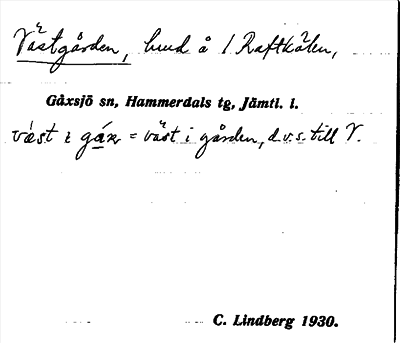 Västgården, hmd å 1 Raftkälen,
Gåxsjö sn, Hammerdals tg, Jämtl. l.
väst i = väst i gården, d.v.s. till V.
C. Lindberg 1930.